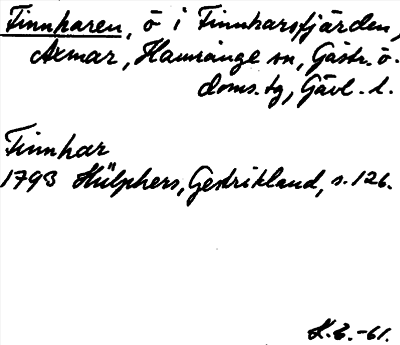 Finnharen, ö i Finnharsfjärden,
Axmar, Hamrånge sn, Gästr. ö.
doms.tg, Gävl. l.
Finnhar
1793 Hülphers, Gestrikland, s. 126.
K.E.-61.